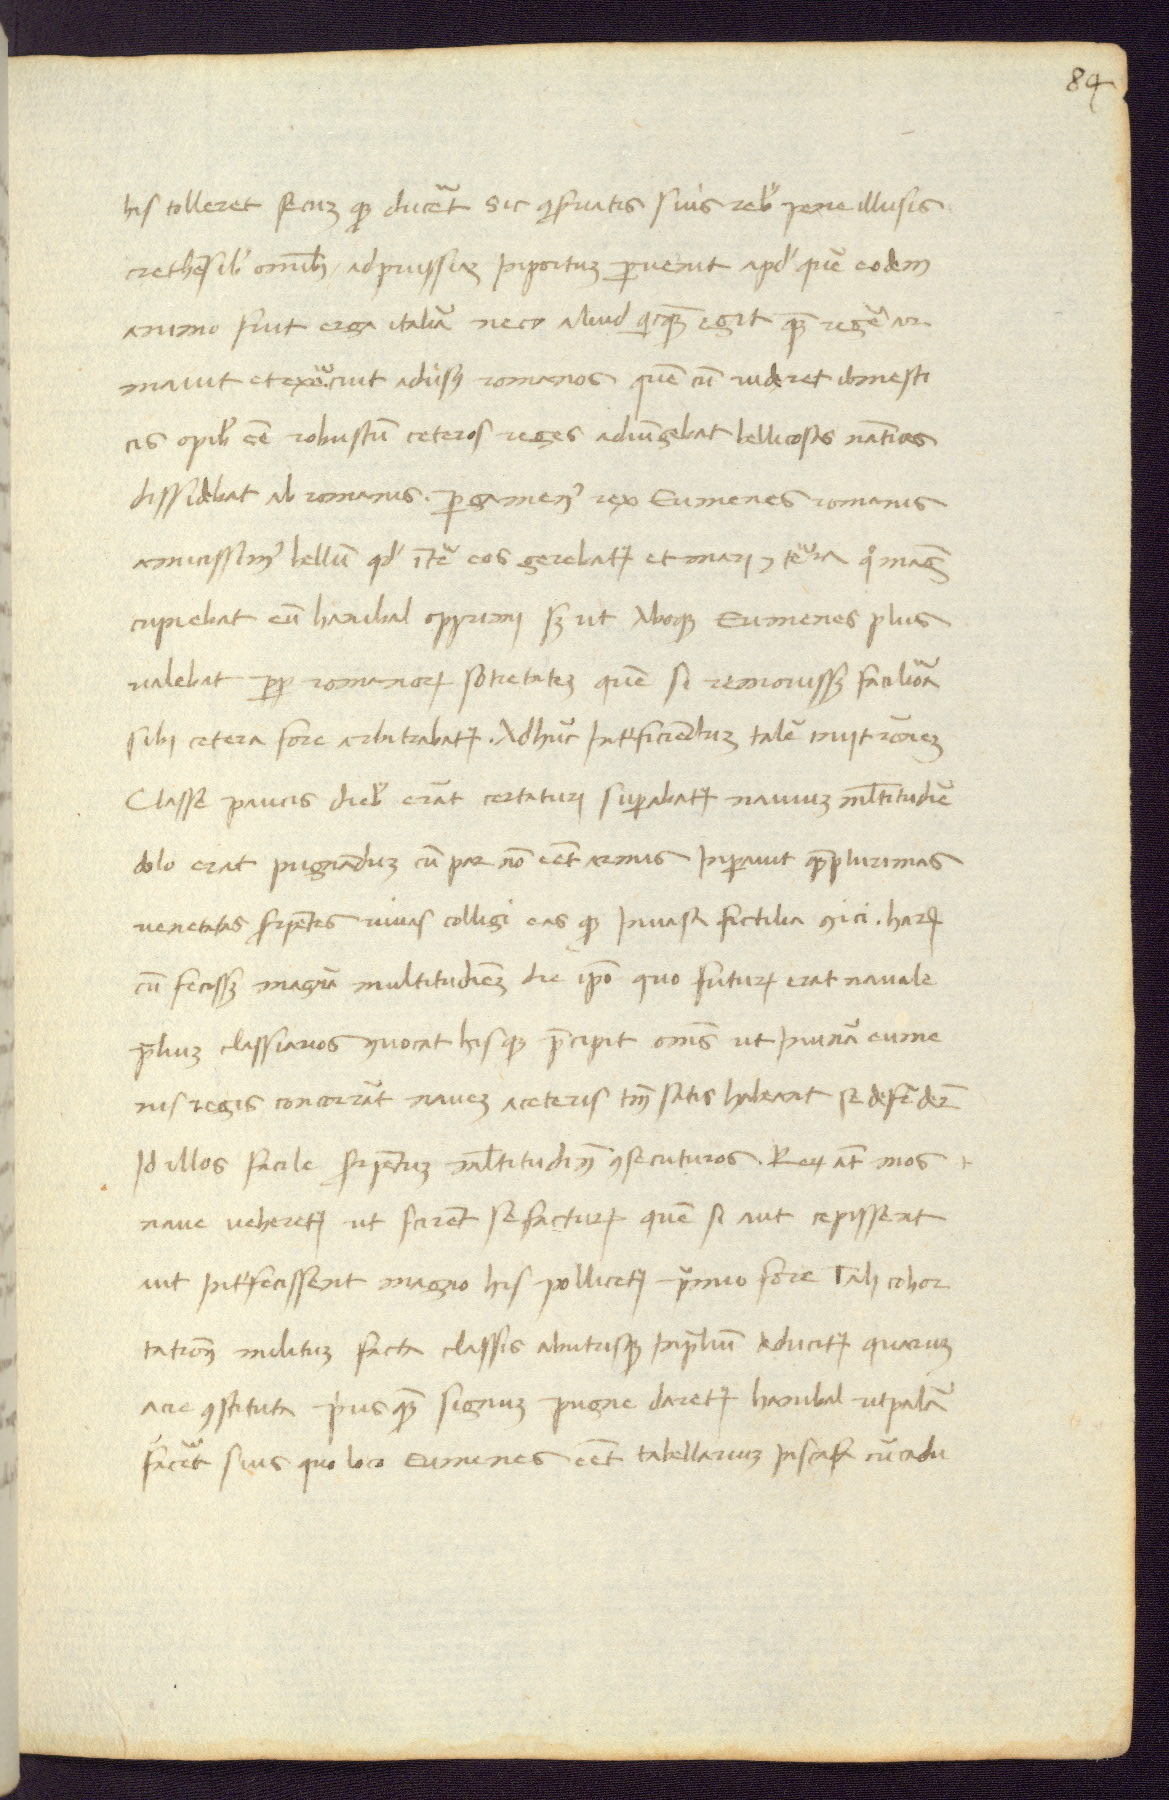 84
his tolleret secuꝫ qꝫ duceret Sic ↄſeruatis suis rebꝰ pene illusis
crethēsibꝰ omībꝫ / ad prussiaꝫ in pontuꝫ ꝑuenit apd' quē eodem
animo fuit erga italiā neqꝫ aliud qicqꝫ egit qꝫ regē ar
mauit et exercuit adūsꝫ romanos quē cū uideret domesti
cis opibꝰ eē robustū ceteros reges adiūgebat bellicosas natīoēs
dissidebat ab romanis. ꝑgamenꝰ rex Eumenes romanis
amicissimꝰ bellū qd' īter eos gerebatᷣ et mari ⁊ terra qͦ magꝭ
cupiebat eū hanibal opprimi sꝫ utrobiqꝫ Eumenes plus
ualebat ꝓp romanoꝝ sotietateꝫ quē si remouissꝫ faciliora
sibi cetera fore arbitrabatᷣ. Ad hūc interficienduꝫ talē iniit rōneꝫ
Classe paucis diebꝰ erāt certaturi suꝑabatᷣ nauiuꝫ ml̄titudīe
dolo erat pugnāduꝫ cū par nō eēt armis inꝑauit qꝫ plurimas
uenenatas serpētes uiuas colligi eas qꝫ in uasa fictilia ↄici. haꝝ
cū fecissꝫ magnā multitudīeꝫ die ip̄o quo futuꝝ erat nauale
p̄liuꝫ classiarios ↄuocat his qꝫ p̄cipit om̄s ut in unā eume
nis regis concurrāt naueꝫ a ceteris tm̄ satis habeant se defēdere
Id illos facile serpētuꝫ ml̄titudine ↄsecuturos. Rex aūt in q̄
naue ueheretᷣ ut scirēt se facturꝫ quē si aut cepissent
aut interfecissent magno his pollicetᷣ p̄mio fore Tali cohor
tatione militum facta classis ab utrisqꝫ in p̄liū deducitᷣ quaruꝫ
acie ↄstituta priusqꝫ signuꝫ pugne daretᷣ hanibal ut palā
faceret suis quo loco eumenes eēt tabellariuꝫ in scafa cū cadu